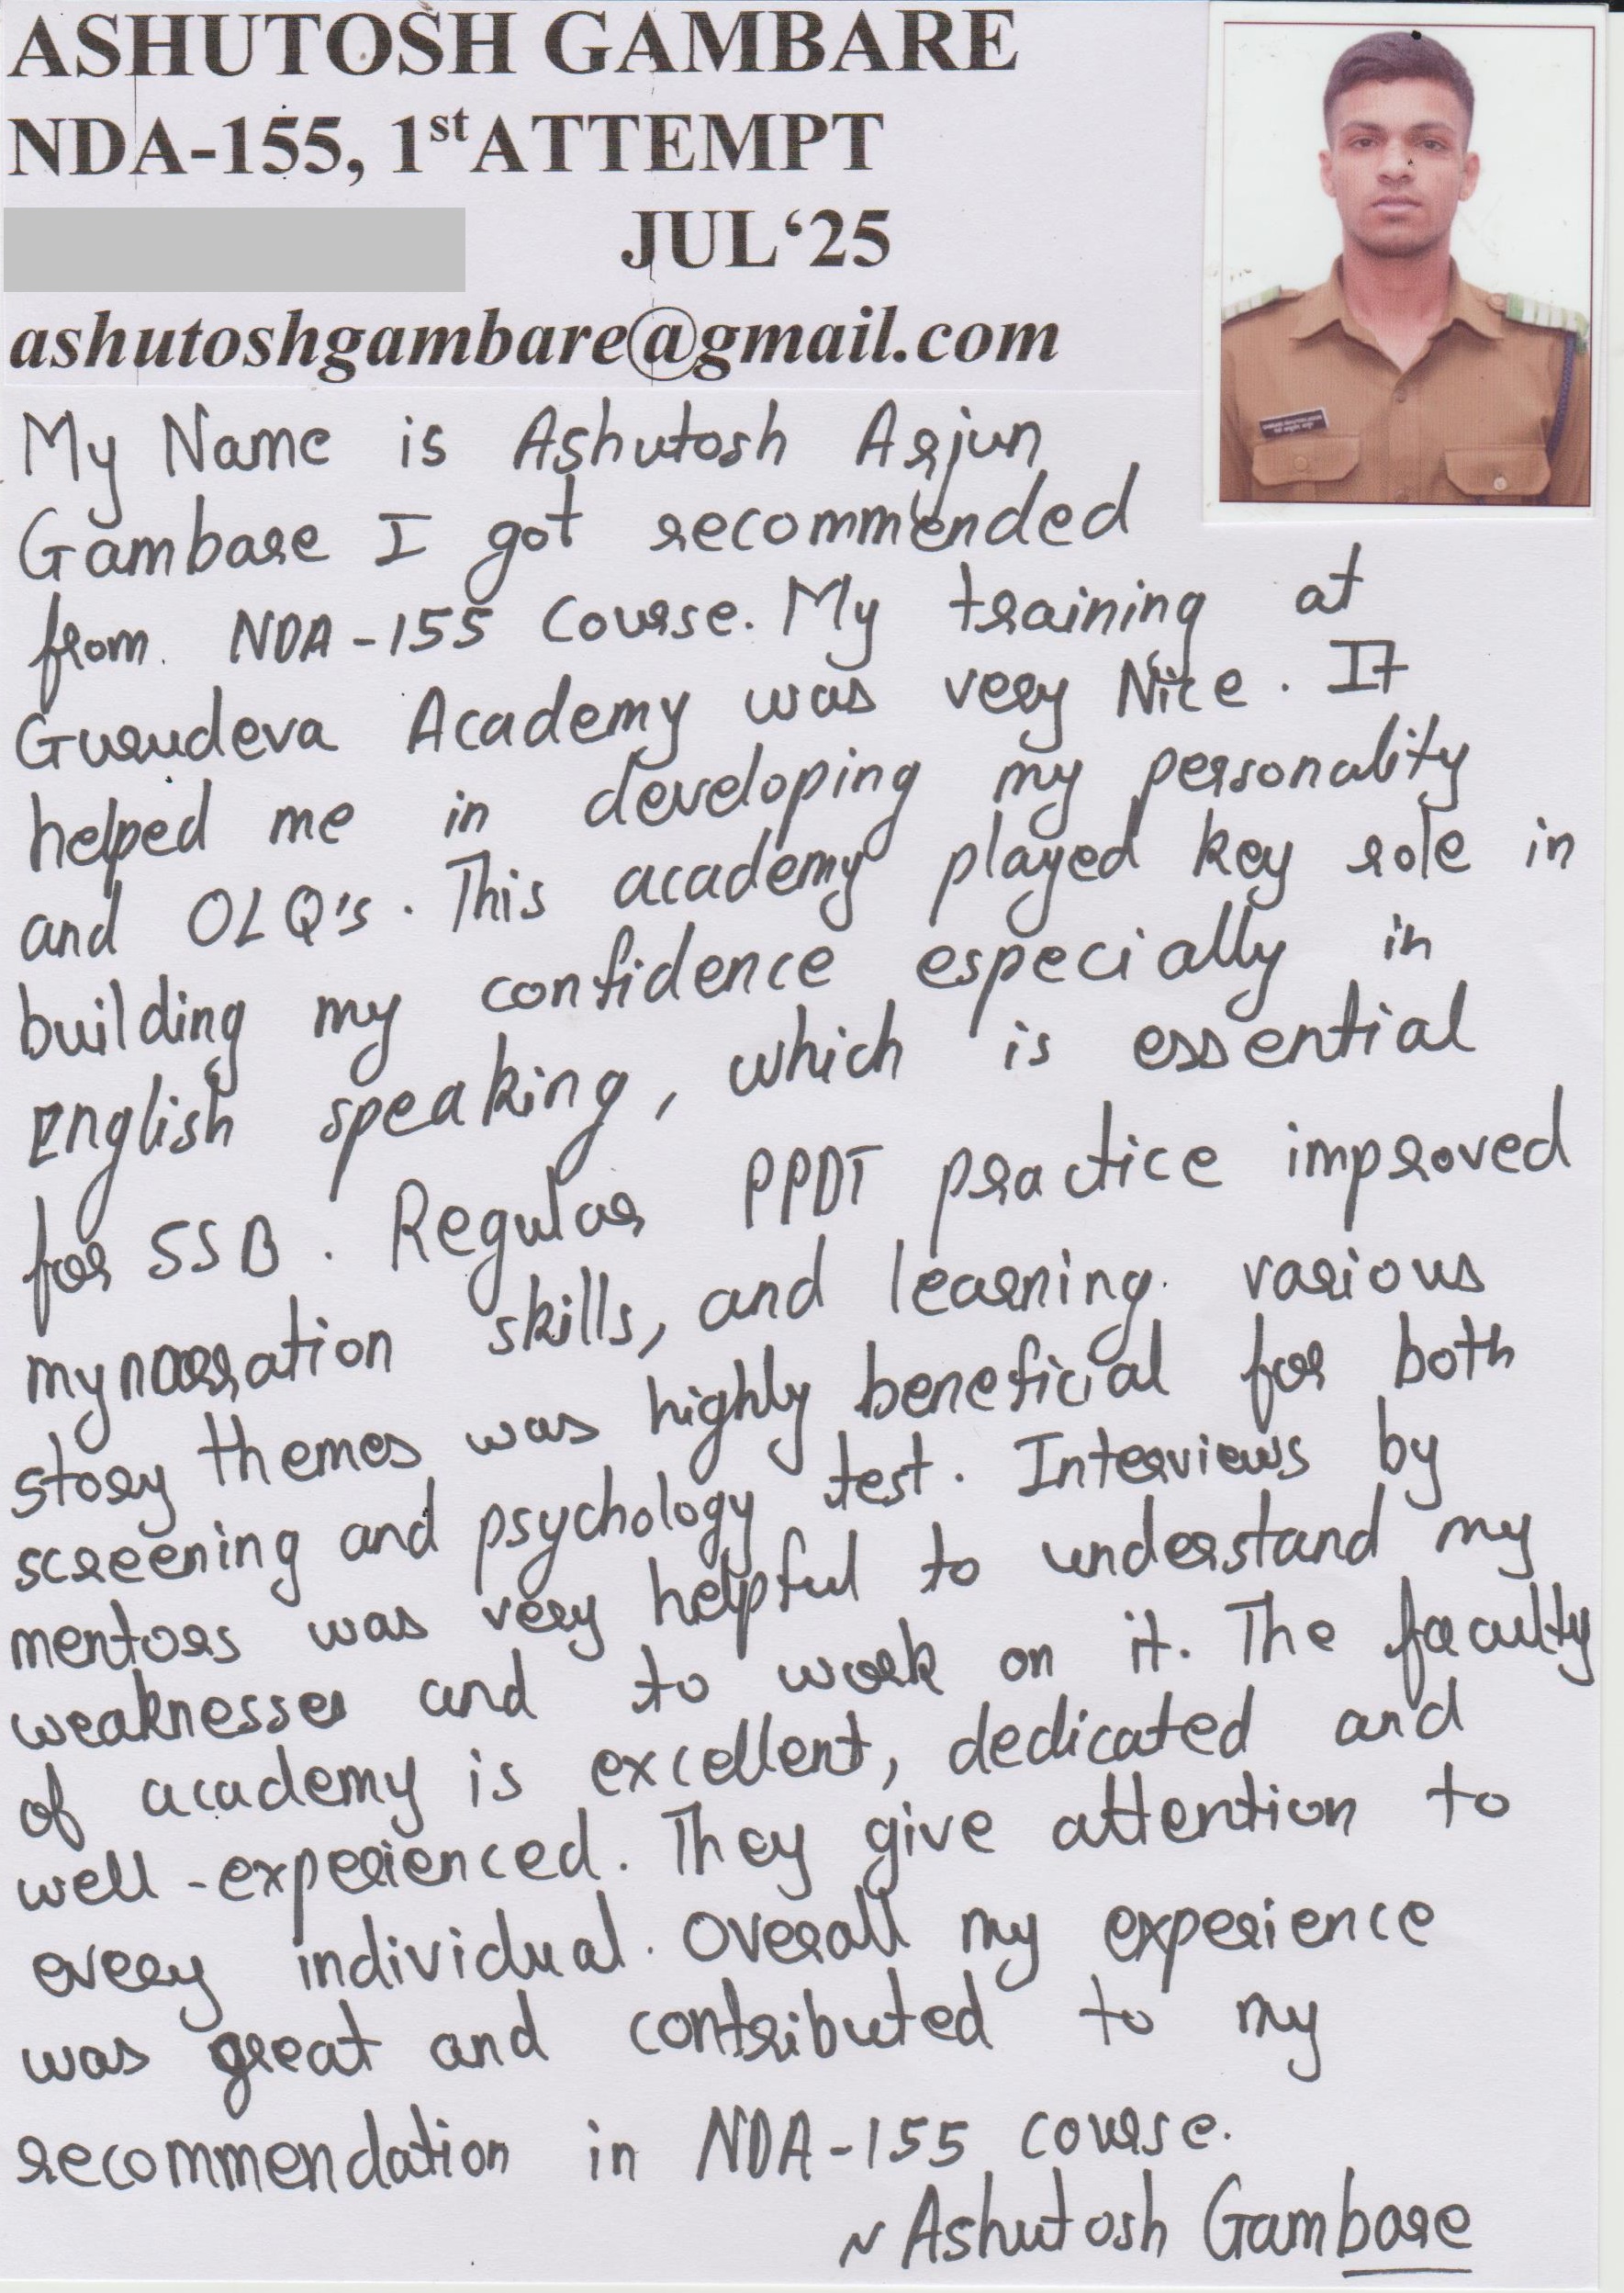 ASHUTOSH GAMBARE
NDA-155, 1st ATTEMPT
JUL‘25
ashutoshgambare@gmail.com
My Name is Ashutosh Arjun
Gambare I got recommended
from. NDA-155 Course. My training at
Gurudeva Academy was very Nice. It
helped me in developing my personality
and OLQ's. This academy played key role in
building my confidence especially in
English speaking, which is essential
for SSB. Regular PPDT practice improved
my narration skills, and learning various
story themes was highly beneficial for both
screening and psychology test. Interviews by
mentors was very helpful to understand my
weaknesses and to work on it. The faculty
of academy is excellent, dedicated and
well-experienced. They give attention to
every individual. Overall my experience
was great and contributed to my
recommendation in NDA-155 course.
~ Ashutosh Gambare